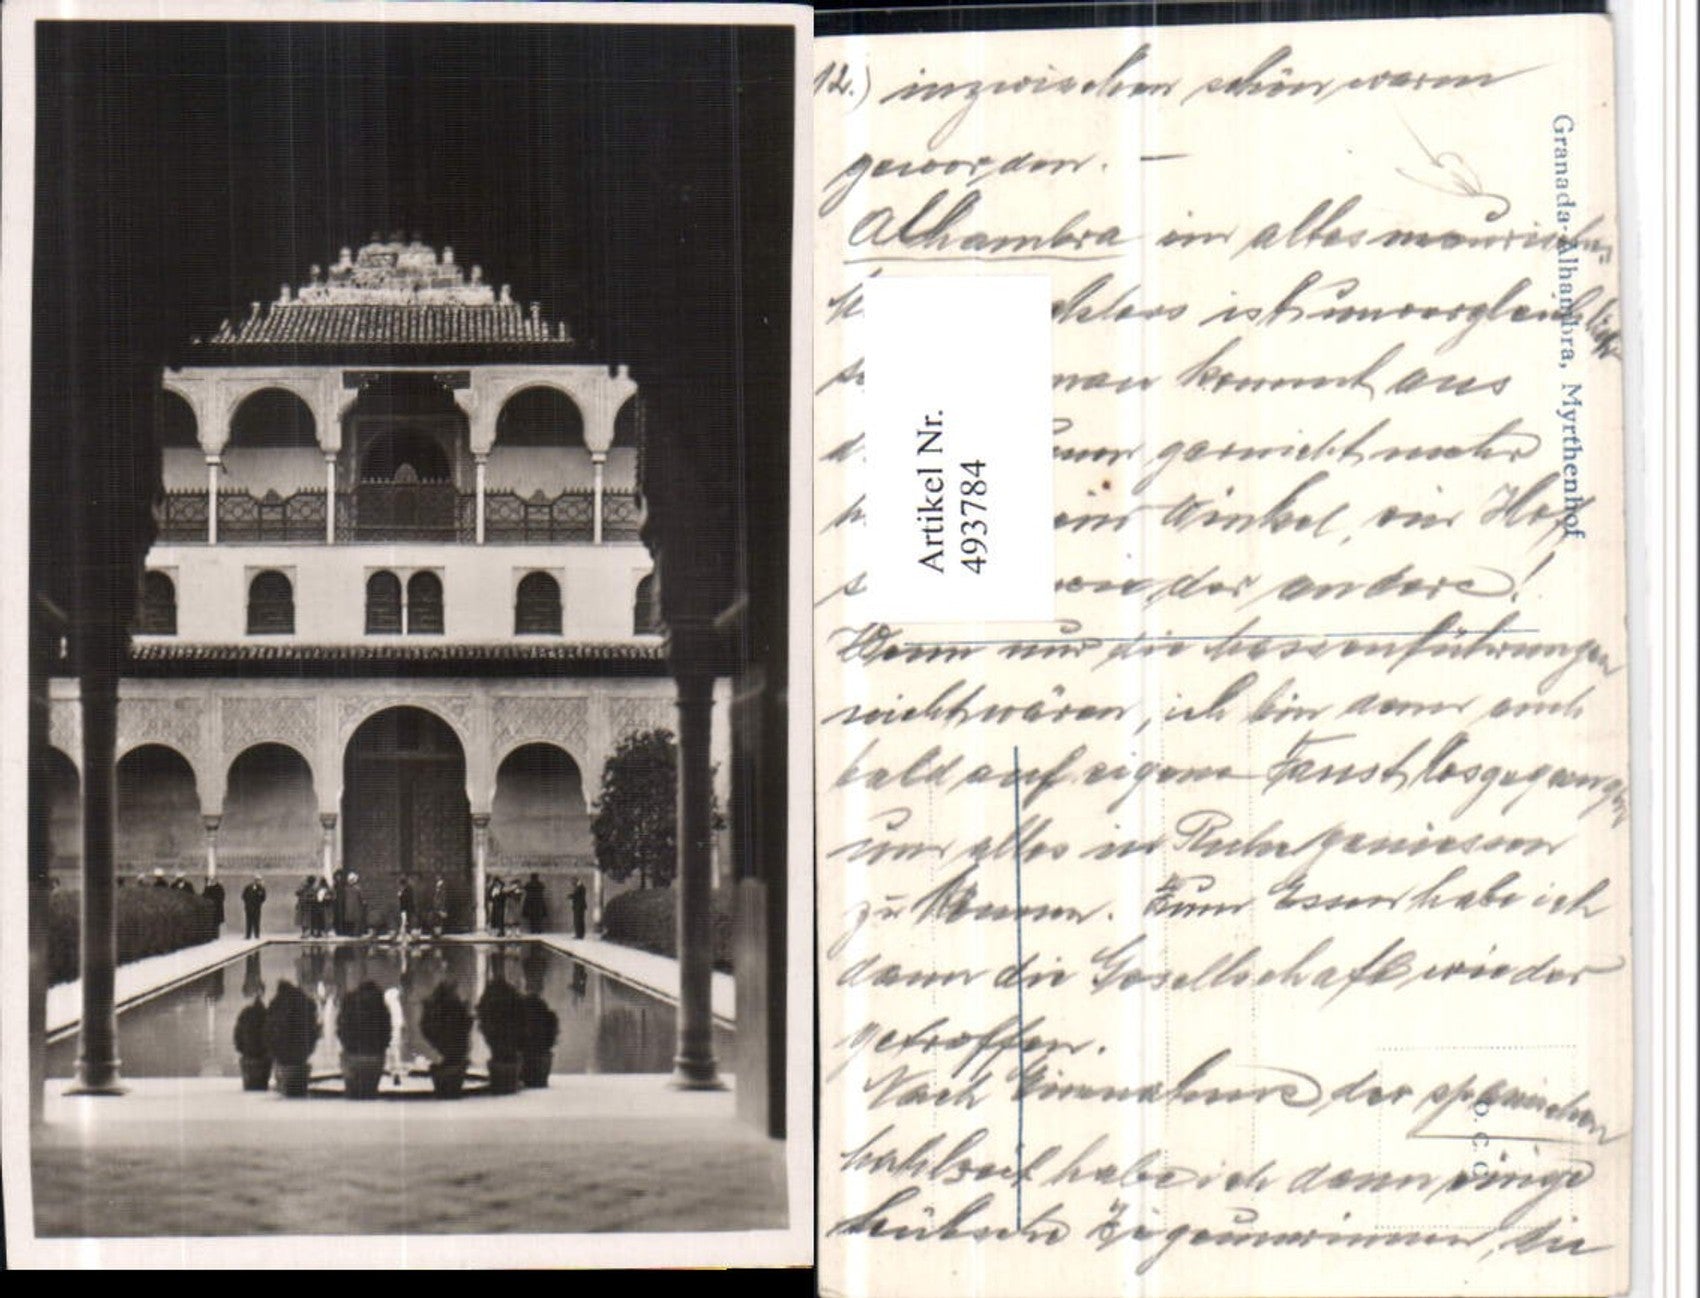 12.) inzwischen schön warm
geworden. —
Alhambra ein altes maurisches
schloss ist unvergleichlich
man kommt aus
garnicht mehr
ein Winkel, ein Hof
der andere!
Wenn nur die Massenführungen
nicht wären, ich bin dann auch
bald auf eigene Faust losgegangen
um alles in Ruhe geniessen
zu können. Zum Essen habe ich
dann die Gesellschaft wieder
getroffen.
Nach Einnahme der spanischen
Mahlzeit habe ich dann einige
hübsche Zigeunerinnen, die
Granada-Alhambra, Myrthenhof
Artikel Nr.
4937784